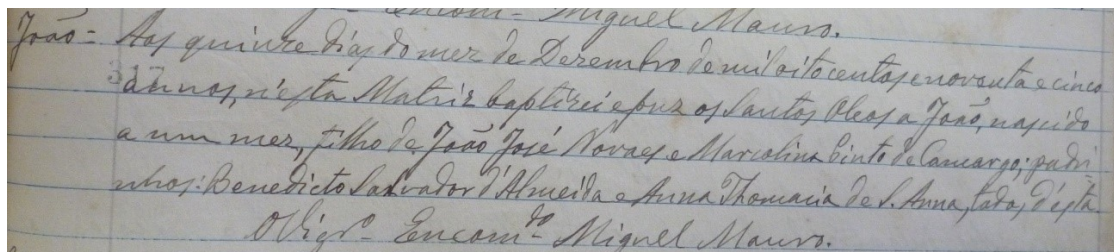 Encom.do Miguel Mauro.
João = Aos quinze dias do mez de Dezembro de mil oitocentos e noventa e cinco
317
annos, n'esta Matriz baptizei e puz os Santos Oleos a João, nascido
a um mez, filho de João José Novaes e Marcolina Pinto de Camargo; padri-
nhos: Benedicto Salvador d'Almeida e Anna Thomacia de S. Anna, todos d'esta
O Vigr.o Encom.do Miguel Mauro.